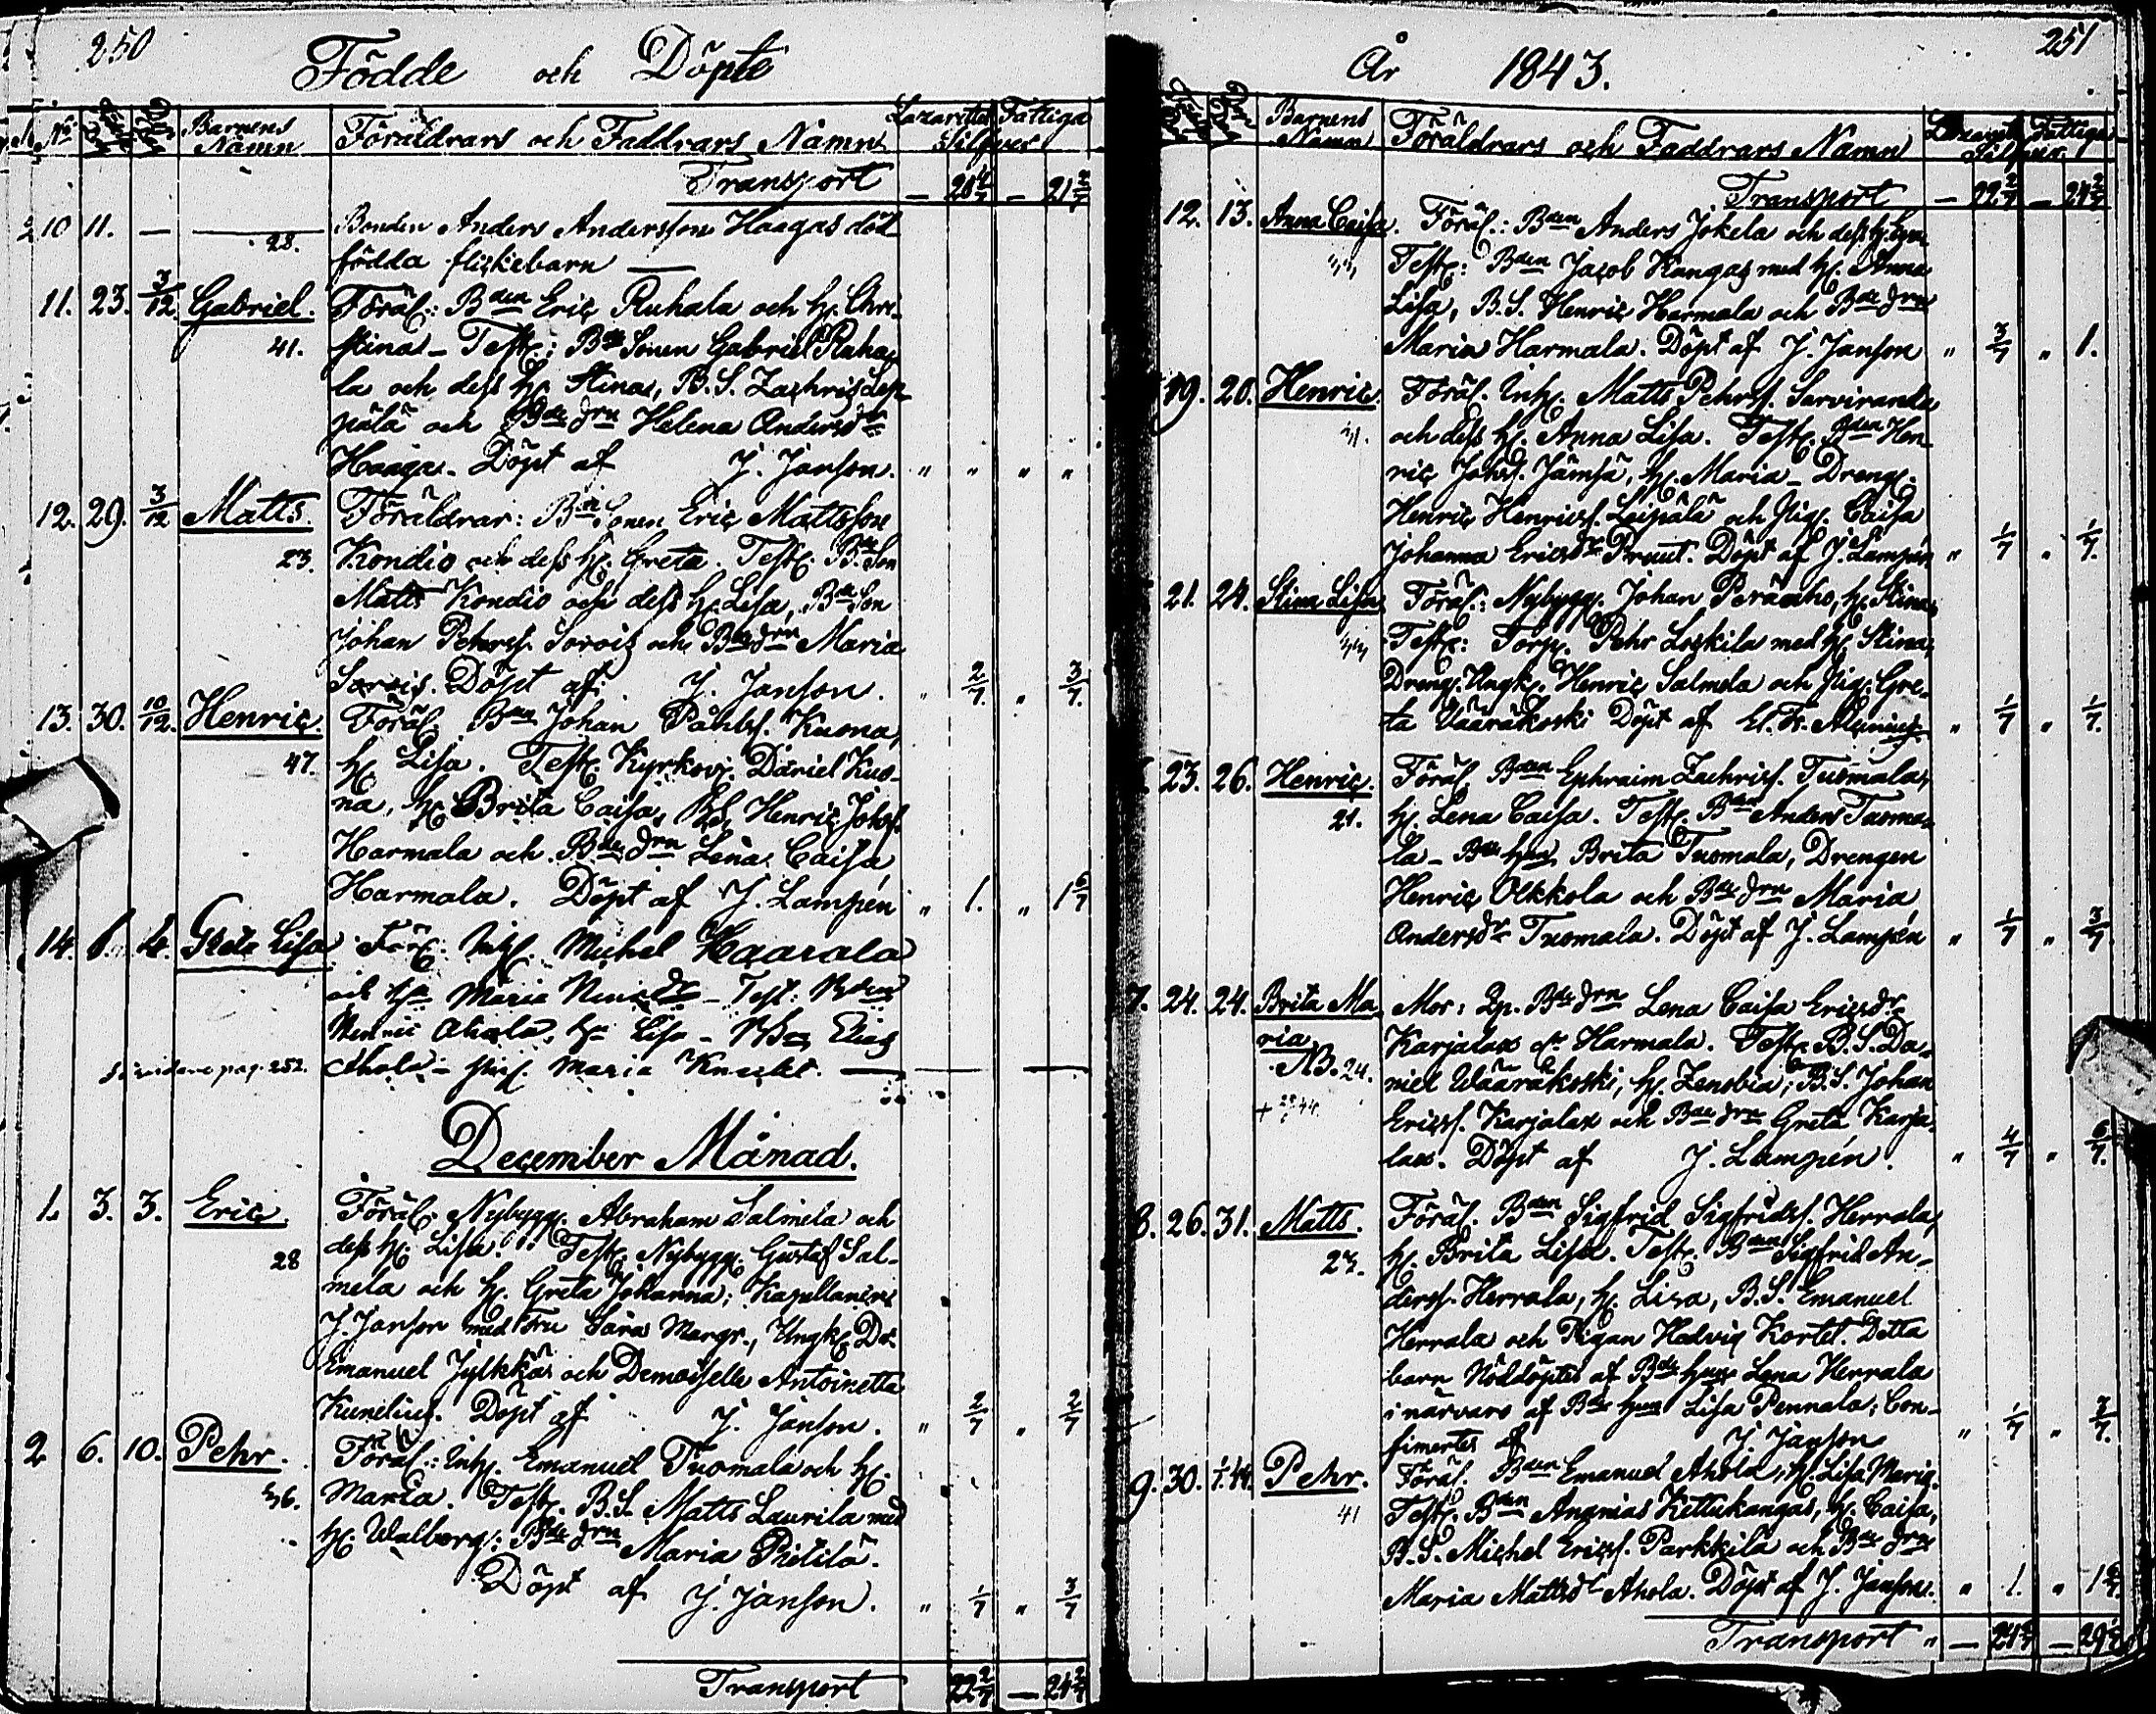 250
Födde och Döpte
No
Barnens Namn
Föräldrars och Faddrars Namn
Lazarettet Fattiga
Silfver
Transport — 20 4/7 — 21 2/7
10 11. — — Bonden Anders Andersson Haagas död
28. födda flickebarn —
11. 23. 3/12 Gabriel. Föräl.: Bden Eric Ruhala och H. Chri-
41. stina – Test.: Bde Sonen Gabriel Ruha-
la och dess H. Stina, B.S. Zachris Lep-
pälä och Bde drn Helena Andersdr
Haaga. Döpt af J. Janson. " " " "
12. 29. 3/12 Matts. Föräldrar: Bde Sonen Eric Mattsson
23. Kondio och dess H. Greta. Test. Bde Son
Matts Kondio och dess H. Lisa, Bde Son
Johan Pehrss. Sorvis och Bde drn Maria
Sorvis. Döpt af J. Janson. " 2/7. " 3/7.
13. 30. 10/12. Henric. Föräl. Bden Johan Påhlss. Kuona,
47. H. Lisa. Test. Kyrkov. Daniel Kuo-
na, H. Brita Caisa, B.S. Henric Johss.
Harmala och Bde drn Lena Caisa
Harmala. Döpt af J. Lampén " 1. " 1 6/7
14. Greta Lisa För. Inh. Michel Haarala
och Hu Maria – Test: Bden
Ahola, Hu Lisa – Elias
Ahola – Maria
pag. 252.
December Månad.
1. 3. 3. Eric. Föräl. Nybygg. Abraham Salmela och
28 dess H. Lisa. Test. Nybygg. Gustaf Sal-
mela och H. Greta Johanna; Kapellanen
J. Janson med Fru Sara Margr., Ungk. Dr.
Emanuel Jylkkä och Demoiselle Antoinetta
Kunelius. Döpt af J. Janson. " 2/7 " 2/7
2 6. 10. Pehr. Föräl.: Inh. Emanuel Tuomala och H.
36. Maria. Test. B.S. Matts Laurila med
H. Walborg: Bde drn Maria Pietilä.
Döpt af J. Janson. " 1/7 " 3/7
Transport 22 2/7 — 24 2/7
251
År 1843.
Barnens Namn
Föräldrars och Faddrars Namn
Lazarettet Fattiga
Silfver
Transport — 22 2/7 — 24 2/7
12. 13. Anna Caisa. Föräl.: Bden Anders Jokela och dess H.
Test.: Bden Jacob Kangas med H. Anna
Lisa, B.S. Henric Harmala och Bde drn
Maria Harmala. Döpt af J. Janson " 3/7 " 1.
19. 20. Henric. Föräl. Inh. Matts Pehrss. Saviranta
31. och dess H. Anna Lisa. Test. Bden Hen-
ric Johss. Jämsä, H. Maria – Dreng.
Henric Henricss. Leipälä och Pig. Caisa
Johanna Ericsdr Pruut. Döpt af J. Lampén " 1/7 " 1/7.
21. 24. Stina Lisa Föräl.: Nybygg. Johan Peräaho, H. Stina
33 Test.: Torp. Pehr Leskilä med H. Stina,
Dreng. Ungk. Henric Salmela och Pig. Gre-
ta Wääräkoski Döpt af " 1/7 " 1/7.
23. 26. Henric. Föräl. Bden Ephraim Zachriss. Tuomala,
21. H. Lena Caisa. Test. Bden Anders Tuoma-
la – Bde hun Brita Tuomala, Drengen
Henric Olkkola och Bde drn Maria
Andersdr Tuomala. Döpt af J. Lampén " 1/7 " 3/7
7. 24. 24. Brita Ma- Mor: Lp. Bde drn Lena Caisa Ericsdr
ria Karjalax Harmala. Test. B.S. Da-
NB. 24. niel Wääräkoski, H. Zenobia; B.S. Johan
Ericss. Karjalax och Bde drn Greta Karja-
lax. Döpt af J. Lampén. " 4/7 " 6/7.
8. 26. 31. Matts. Föräl. Bden Sigfrid Sigfridss. Herrala,
23. H. Brita Lisa. Test. Bden Sigfrid An-
derss. Herrala, H. Lisa, B.S. Emanuel
Herrala och Pigan Hedvig Kortet. Detta
barn Nöddöptes af Bde hun Lena Herrala
i närvaro af Bde hun Lisa Pennala; Con-
fimertes af J. Janson " 1/7 " 2/7.
9. 30. 1/1 44. Pehr. Föräl. Bden Emanuel Ahola, H. Lisa Maria.
41 Test. Bden Ananias Kettukangas, H. Caisa,
B.S. Michel Ericss. Parkkila och Bde drn
Maria Mattsdr Ahola. Döpt af J. Janson. " 1. "
Transport " —